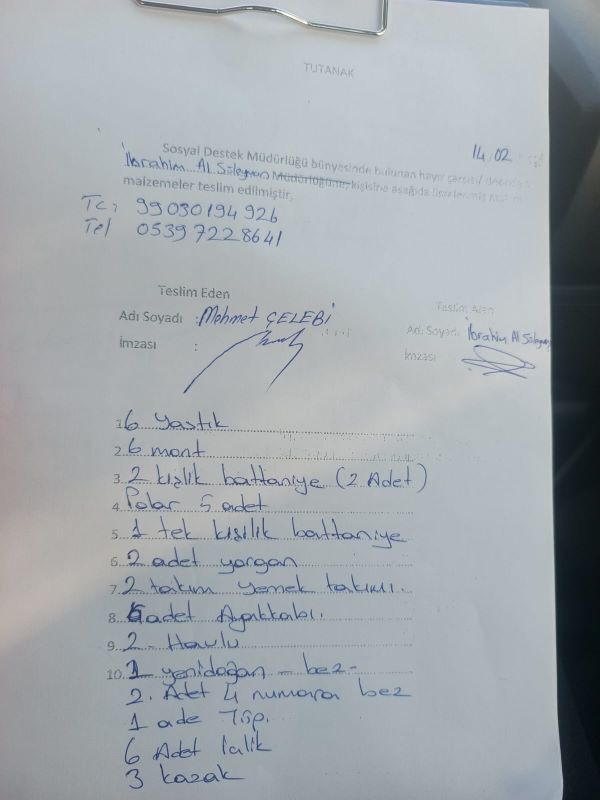 TUTANAK
14.02
Sosyal Destek Müdürlüğü bünyesinde bulunan hayır çarşısı
İbrahim Al Süleyman Müdürlüğüne, kişisine aşağıda
malzemeler teslim edilmiştir,
Tc: 99030194926
Tel 0539 7228641
Teslim Eden
Adı Soyadı : Mehmet ÇELEBİ
İmzası :
Teslim Alan
Adı Soyadı İbrahim Al Süleyman
İmzası
1. 6 Yastık
2. 6 mont
3. 2 kişlik battaniye (2 Adet)
4. Polar 5 adet
5. 1 tek kişilik battaniye
6. 2 adet yorgan
7. 2 takım yemek takımı.
8. 6 adet Ayakkabı.
9. 2 - Havlu
10. 1 yenidoğan - bez -
2. Adet 4 numara bez
1 ade
6 Adet
3 kazak